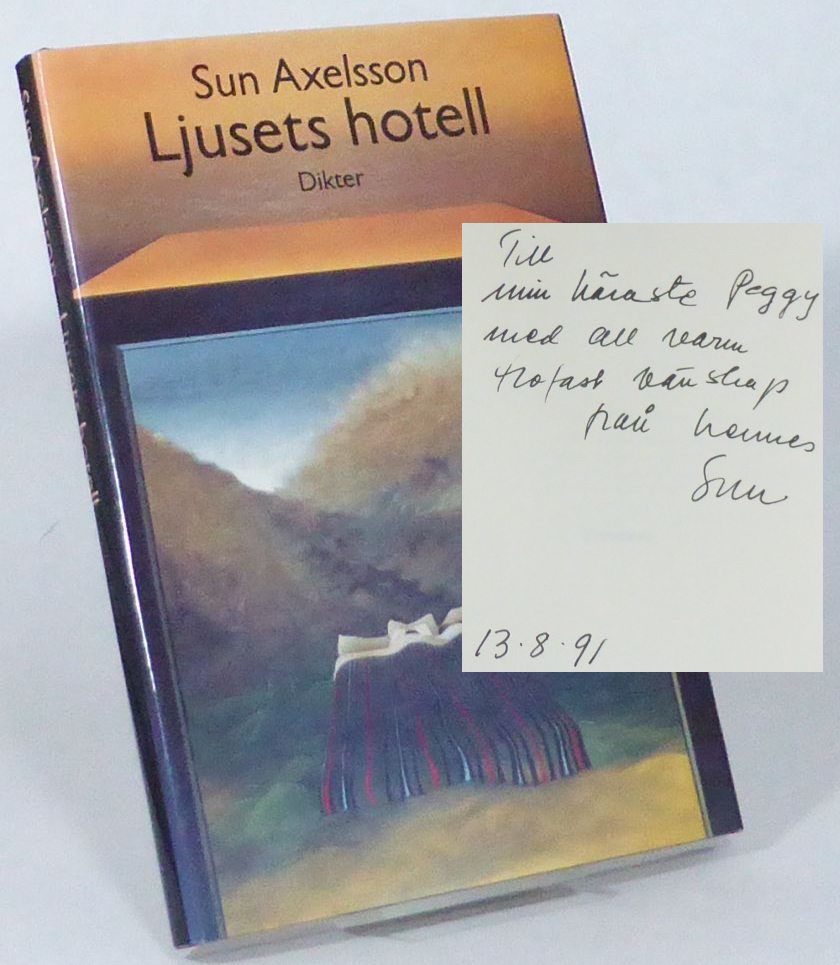 Sun Axelsson
Ljusets hotell
Dikter
Sun Axelsson Ljusets hotell
Till
min käraste Peggy
med all varm
trofast vänskap
från hennes
Sun
13·8·91